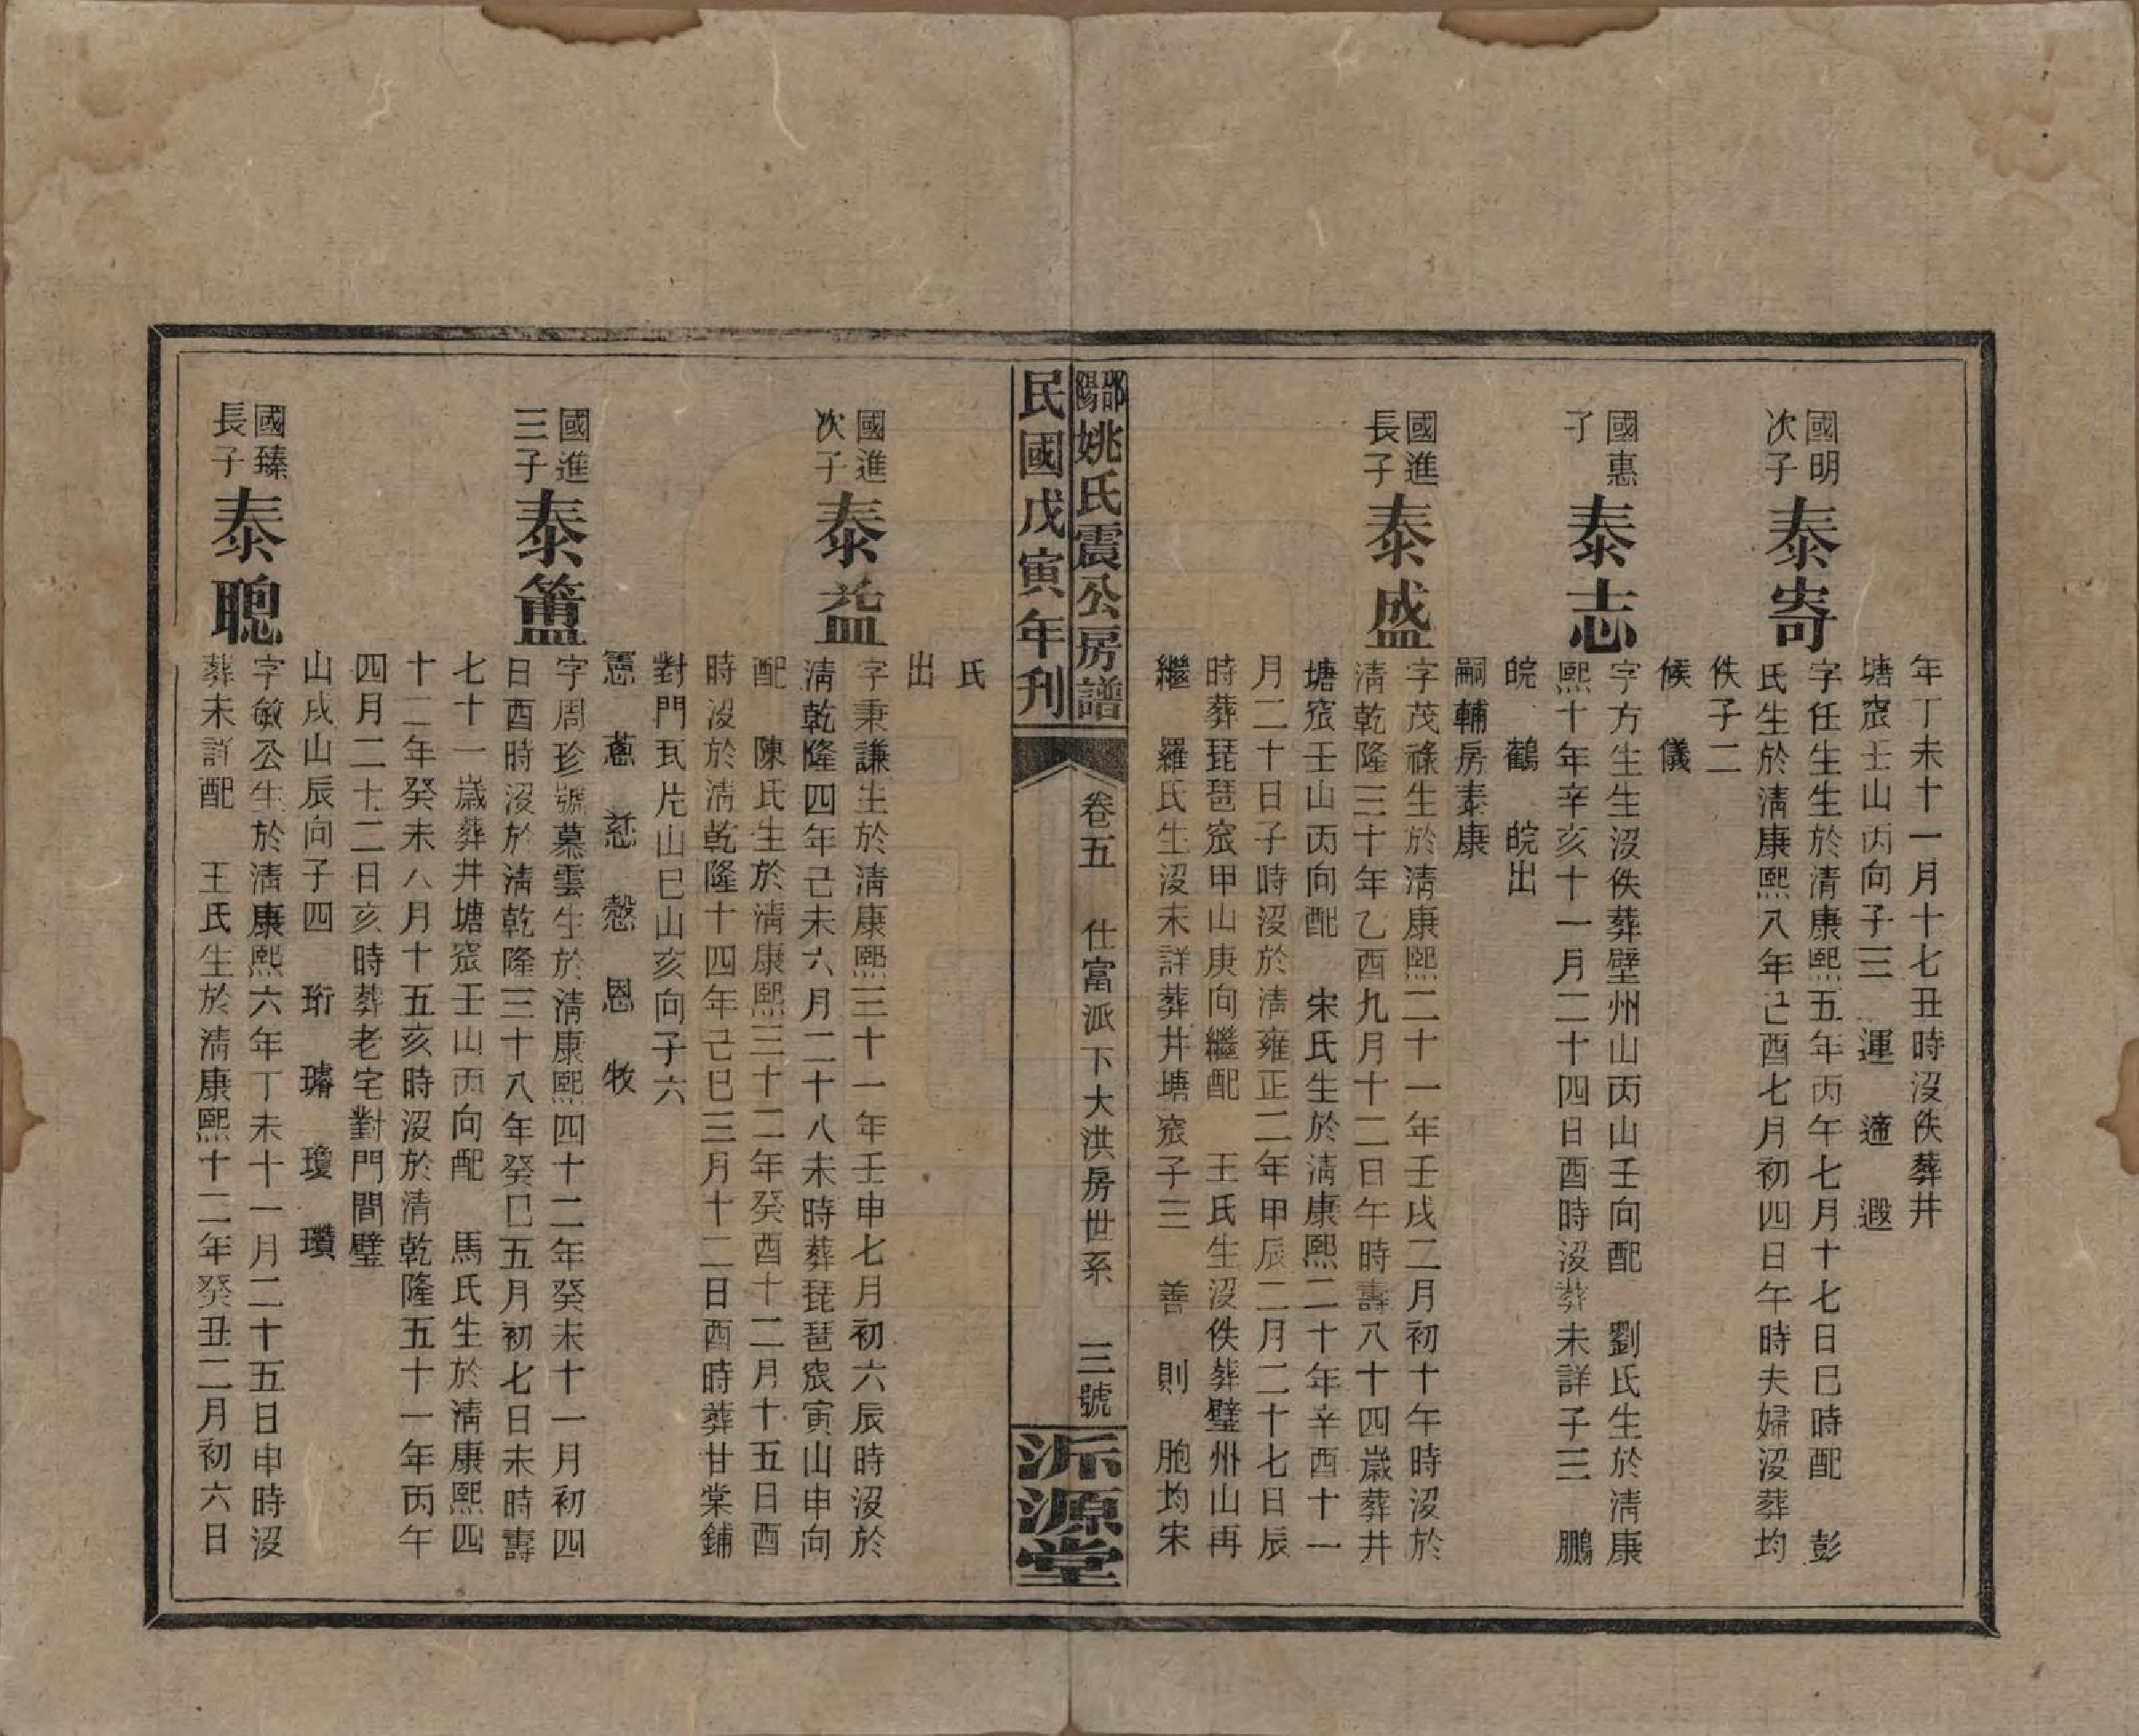 年丁未十一月十七丑時沒佚葬井
塘窊壬山丙向子三 運 適 遐
國明
次子
泰寄
字任生生於清康熙五年丙午七月十七日巳時配 彭
氏生於清康熙八年己酉七月初四日午時夫婦沒葬均
佚子二
候 儀
國惠
子
泰志
字方生生沒佚葬壁州山丙山壬向配 劉氏生於清康
熙十年辛亥十一月二十四日酉時沒葬未詳子三 鵬
皖 鶴 皖出
嗣輔房泰康
國進
長子
泰盛
字茂祿生於清康熙二十一年壬戌二月初十午時沒於
清乾隆三十年乙酉九月十二日午時壽八十四歲葬井
塘窊壬山丙向配 宋氏生於清康熙二十年辛酉十一
月二十日子時沒於清雍正二年甲辰二月二十七日辰
時葬琵琶窊甲山庚向繼配 王氏生沒佚葬璧州山再
繼 羅氏生沒未詳葬井塘窊子三 善 則 胞均宋
邵陽姚氏震公房譜
民國戊寅年刊
卷五 仕富派下大洪房世系 三號
泝源堂
氏
出
國進
次子
泰益
字秉謙生於清康熙三十一年壬申七月初六辰時沒於
清乾隆四年己未六月二十八未時葬琵琶窊寅山申向
配 陳氏生於清康熙三十二年癸酉十二月十五日酉
時沒於清乾隆十四年己巳三月十二日酉時葬甘棠鋪
對門瓦片山巳山亥向子六
憲 蒽 恁 慇 恩 牧
國進
三子
泰簠
字周珍號慕雲生於清康熙四十二年癸未十一月初四
日酉時沒於清乾隆三十八年癸巳五月初七日未時壽
七十一歲葬井塘窊壬山丙向配 馬氏生於清康熙四
十二年癸未八月十五亥時沒於清乾隆五十一年丙午
四月二十二日亥時葬老宅對門間璧
山戌山辰向子四 珩 璿 瓊 瓚
國臻
長子
泰聰
字敏公生於清康熙六年丁未十一月二十五日申時沒
葬未詳配 王氏生於清康熙十二年癸丑二月初六日